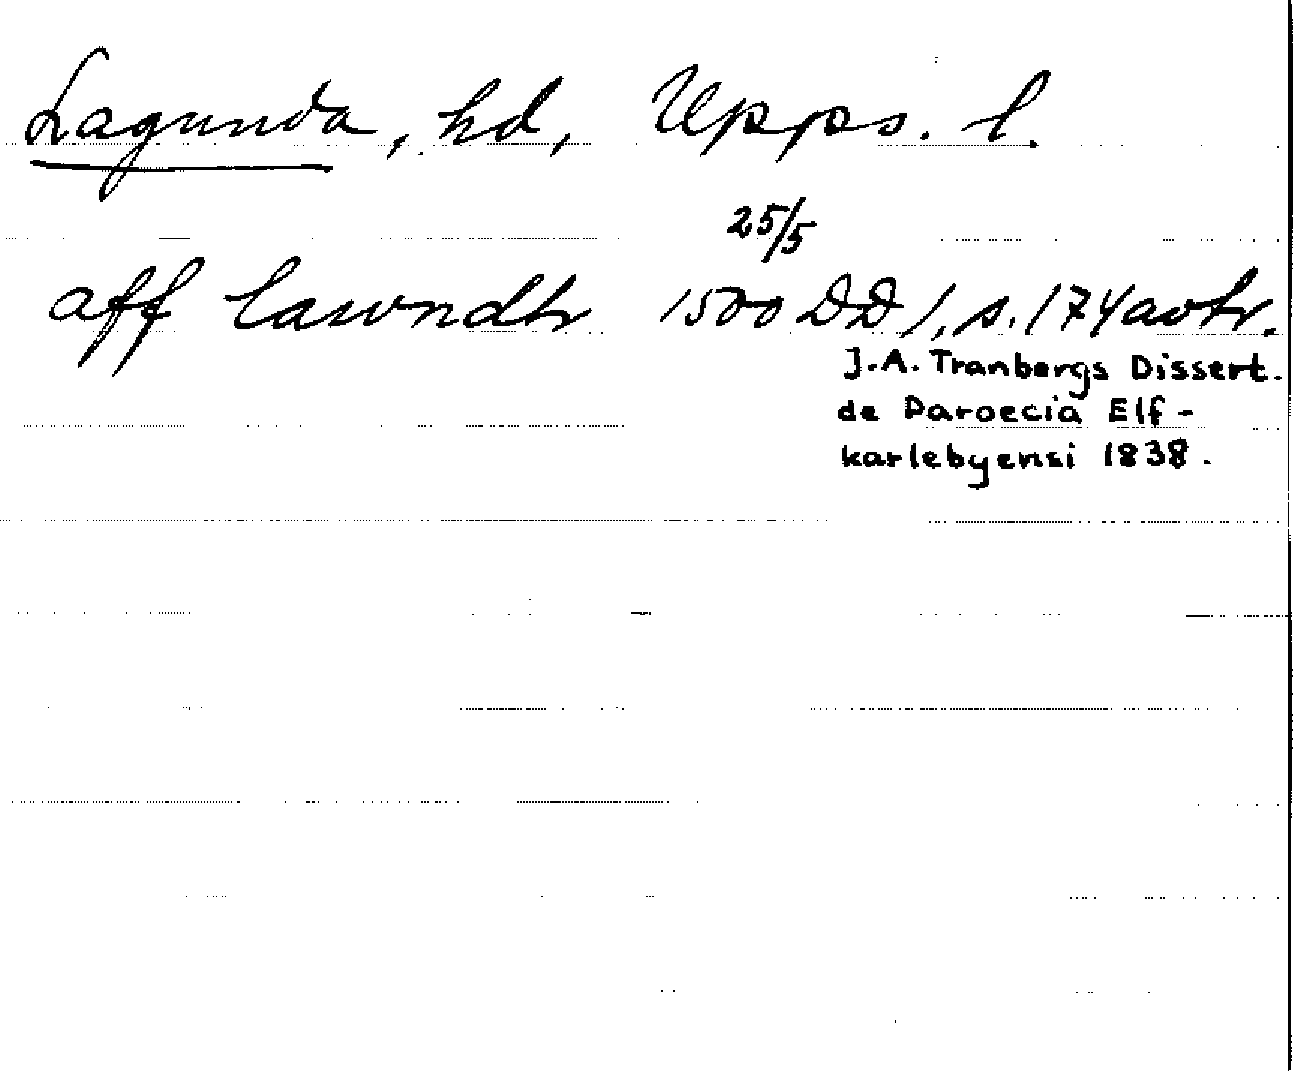 Lagunda, hd, Upps. l.
25/5
aff lawndh 1500 DD 1, s. 174 avtr.
J.A. Tranbergs Dissert.
de Paroecia Elf-
karlebyensi 1838.